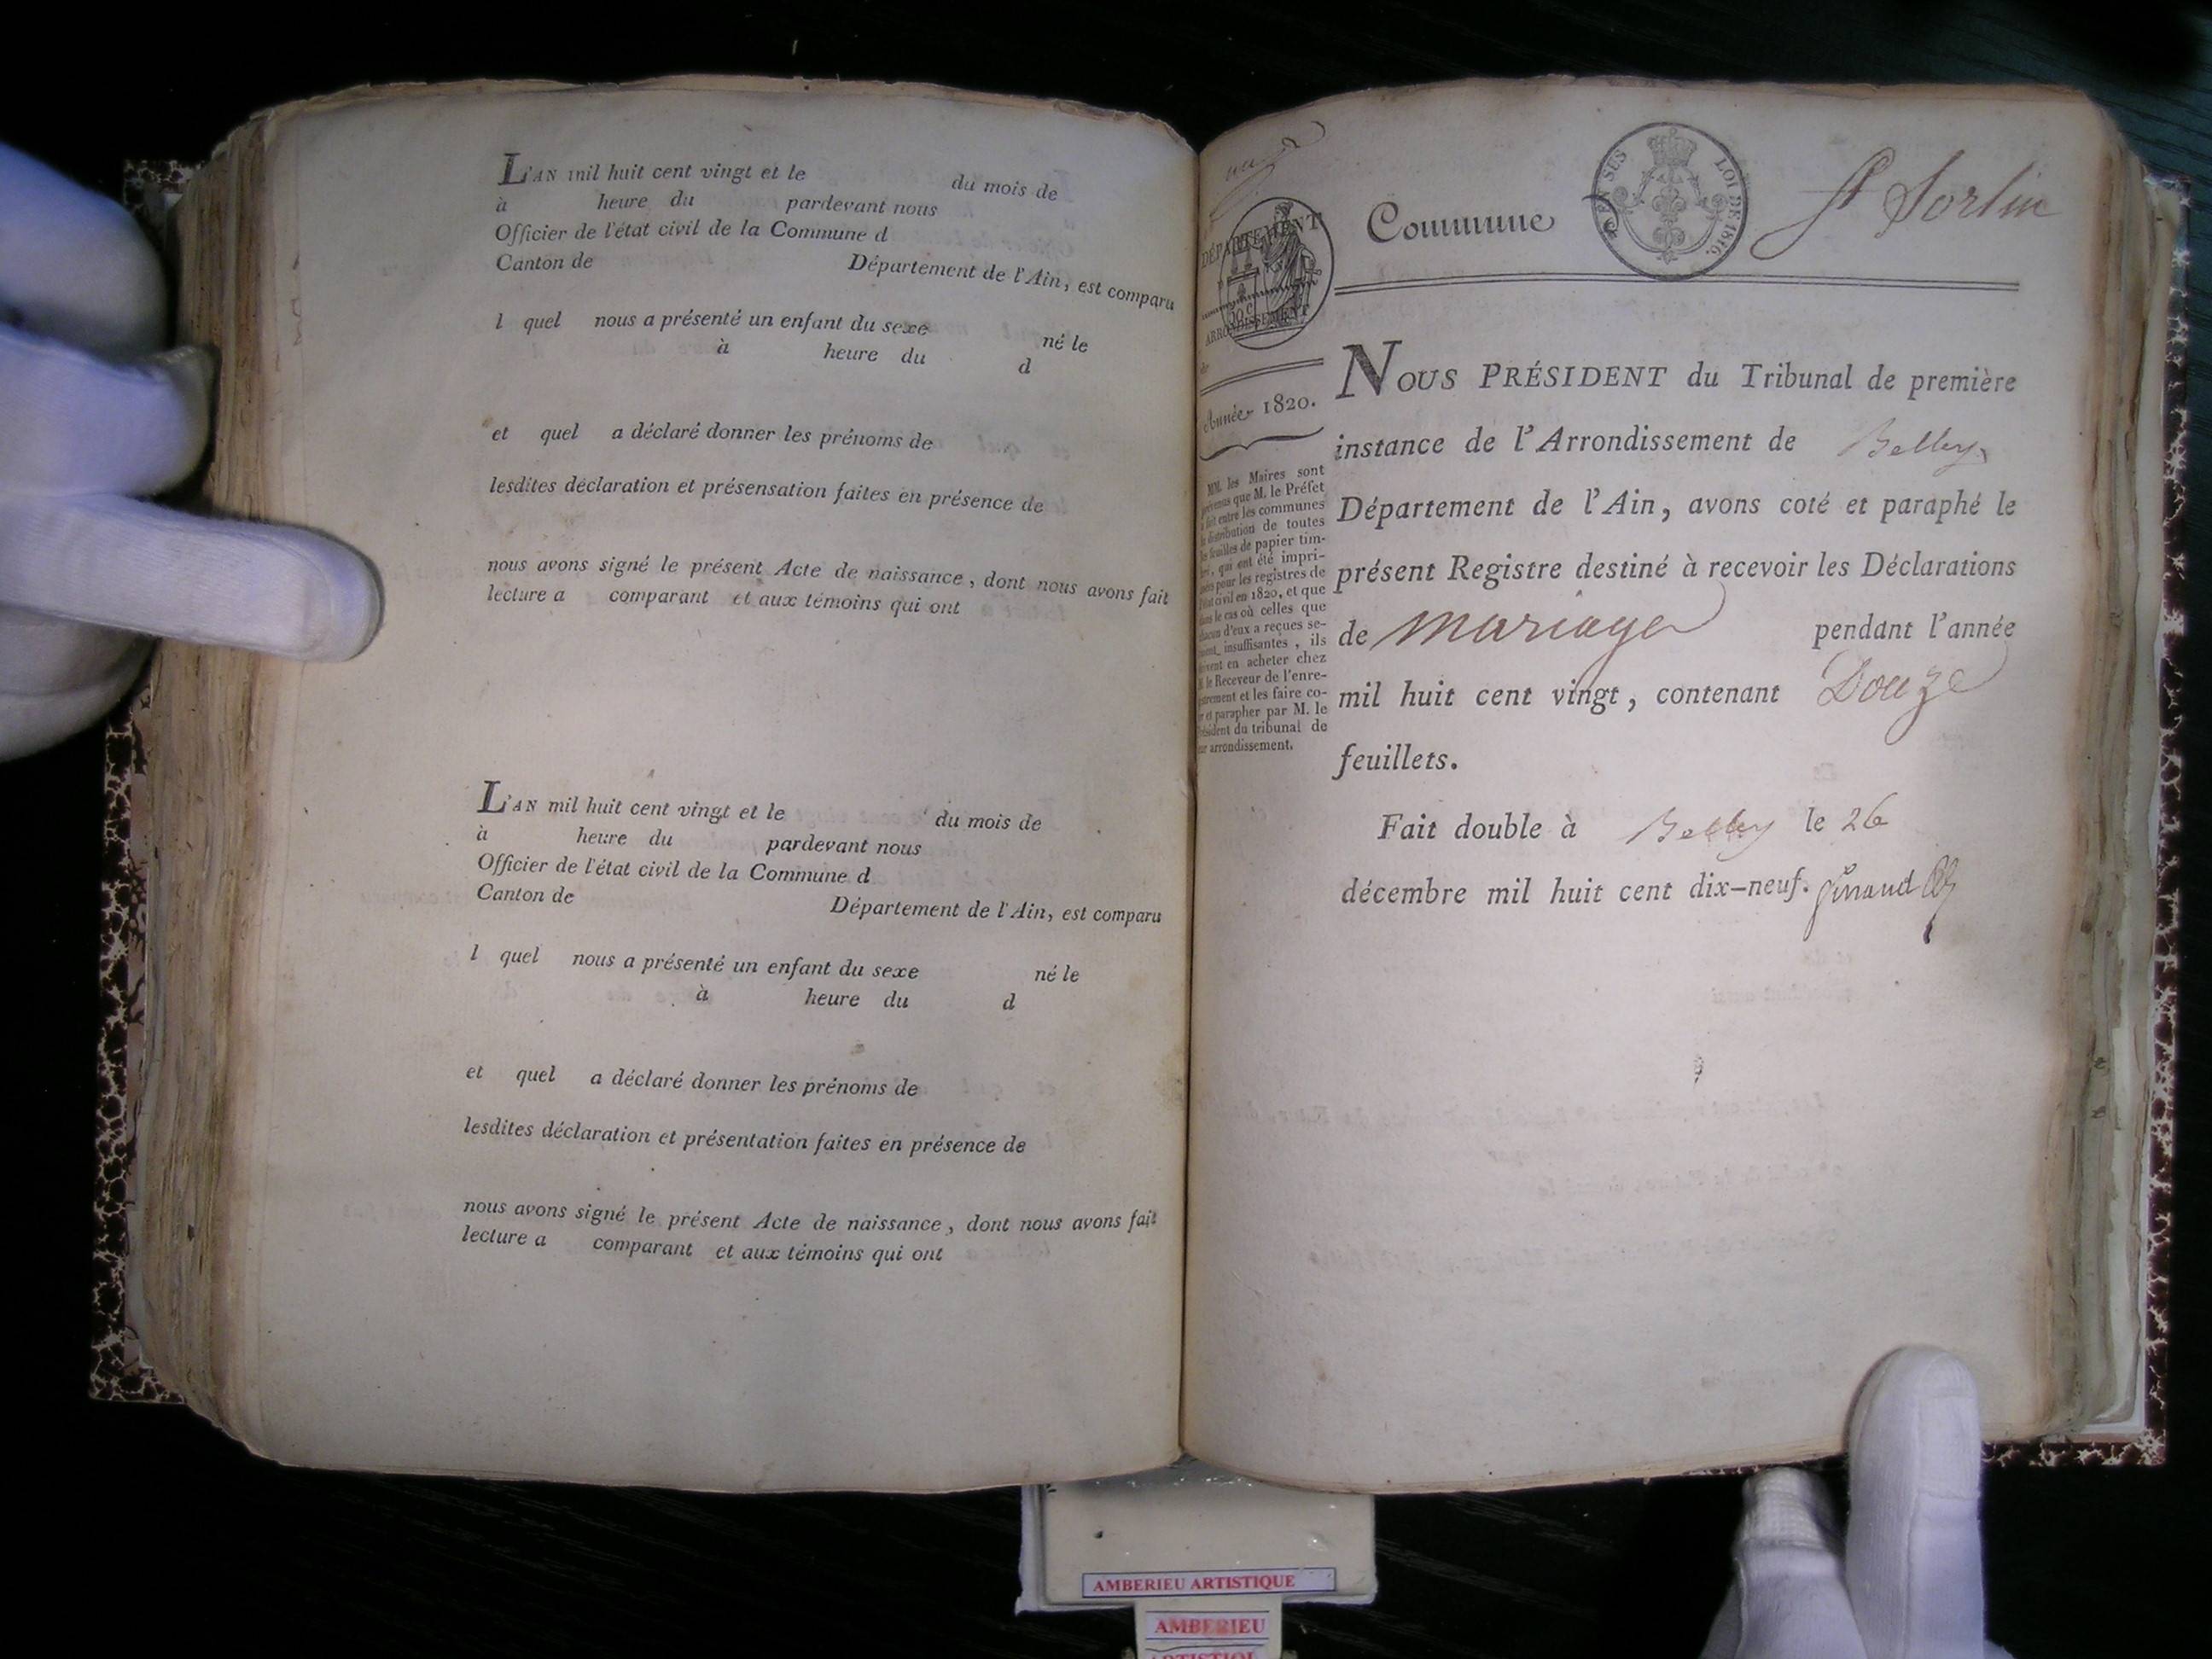 L'AN mil huit cent vingt et le du mois de
à heure du pardevant nous
Officier de l'état civil de la Commune d
Canton de Département de l'Ain, est comparu
l quel nous a présenté un enfant du sexe né le
à heure du d
et quel a déclaré donner les prénoms de
lesdites déclaration et présensation faites en présence de
nous avons signé le présent Acte de naissance, dont nous avons fait
lecture a comparant et aux témoins qui ont
L'AN mil huit cent vingt et le du mois de
à heure du pardevant nous
Officier de l'état civil de la Commune d
Canton de Département de l'Ain, est comparu
l quel nous a présenté un enfant du sexe né le
à heure du d
et quel a déclaré donner les prénoms de
lesdites déclaration et présentation faites en présence de
nous avons signé le présent Acte de naissance, dont nous avons fait
lecture a comparant et aux témoins qui ont
DÉPARTEMENT
ARRONDISSEMENT
de
Année 1820.
MM. les Maires sont
que M. le Préfet
fait entre les communes
distribution de toutes
feuilles de papier tim-
qui ont été impri-
pour les registres de
civil en 1820, et que
le cas où celles que
d'eux a reçues se-
insuffisantes, ils
en acheter chez
le Receveur de l'enre-
et les faire co-
et parapher par M. le
du tribunal de
arrondissement.
Commune St Sorlin
SES LOI DE 1816.
NOUS PRÉSIDENT du Tribunal de première
instance de l'Arrondissement de Belley
Département de l'Ain, avons coté et paraphé le
présent Registre destiné à recevoir les Déclarations
de mariage pendant l'année
mil huit cent vingt, contenant Douze
feuillets.
Fait double à Belley le 26
décembre mil huit cent dix-neuf.
AMBERIEU ARTISTIQUE
AMBERIEU